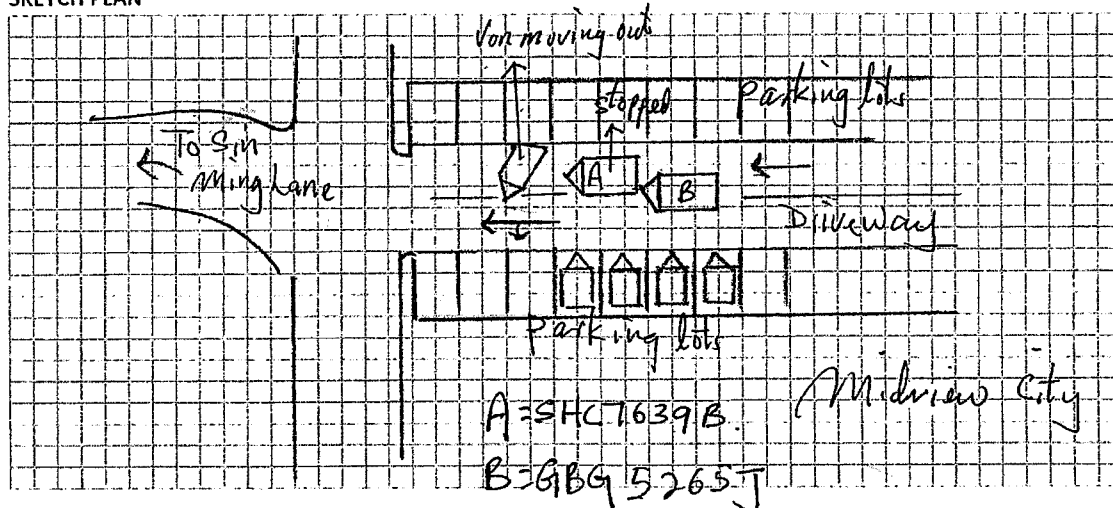 SKETCH PLAN
Van moving out
stopped
Parking lots
To Sin
Ming Lane
A
B
Driveway
Parking lots
Midview City
A=SHC7639B.
B=GBG5265J